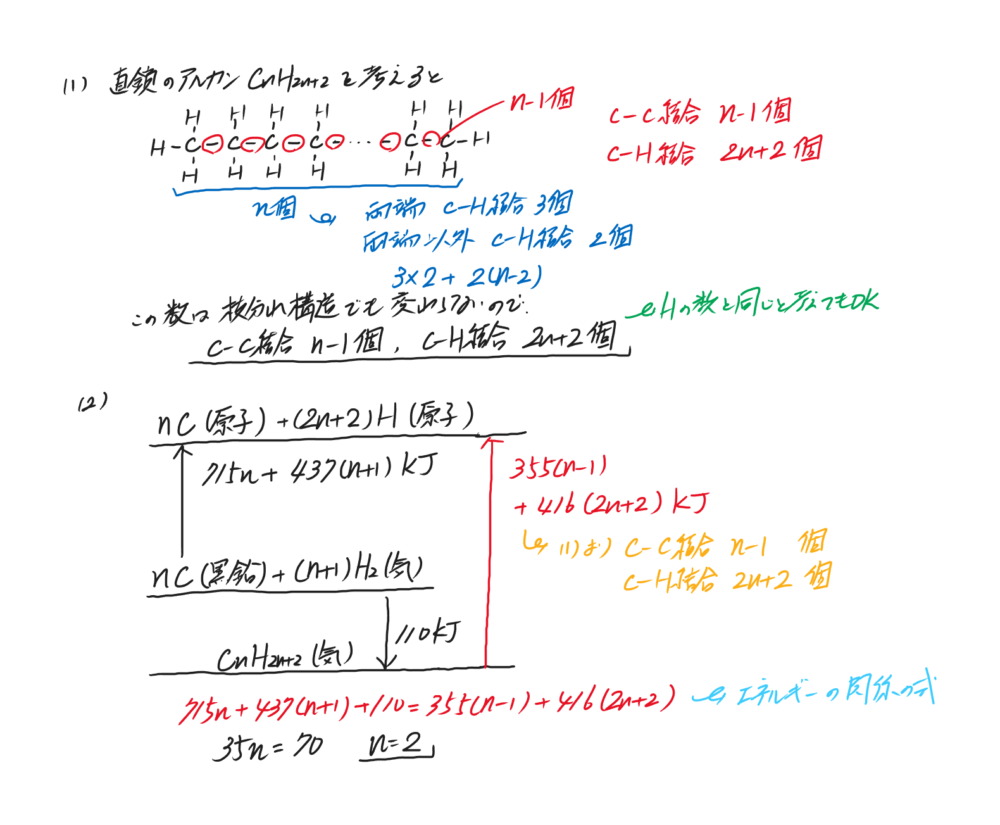 (1) 直鎖のアルカン CnH2n+2 を考えると
H H H H H H
H-C-C-C-C-…-C-C-H
H H H H H H
n-1個
C-C結合 n-1個
C-H結合 2n+2個
n個 両端 C-H結合 3個
両端以外 C-H結合 2個
3×2+2(n-2)
この数は枝分れ構造でも変わらないので、
Hの数と同じと考えてもOK
C-C結合 n-1個, C-H結合 2n+2個
(2)
nC(原子)+(2n+2)H(原子)
715n+437(n+1)kJ
355(n-1)
+416(2n+2)kJ
(1)より C-C結合 n-1 個
C-H結合 2n+2 個
nC(黒鉛)+(n+1)H2(気)
110kJ
CnH2n+2(気)
715n+437(n+1)+110=355(n-1)+416(2n+2)
エネルギーの関係の式
35n=70 n=2